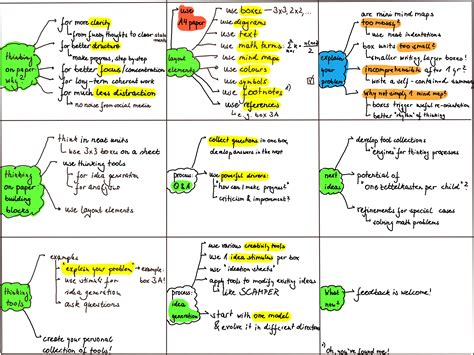 thinking
on paper
why?
for more clarity
from fuzzy thoughts to clear statements
for better structure
make progress, step by step
for better focus/concentration
for long-term coherent work
for much less distraction
no noise from social media
layout
elements
use
A4 paper
use boxes - 3x3, 2x2, ...
use diagrams
use text
use math terms
use mind maps
use colours
use symbols
use footnotes
use references
e.g. box 3A
explain
your
problem
are mini mind maps
too messy?
use neat indentations
box writes too small?
smaller writing, larger boxes!
incomprehensible after 1 yr?
write a self-contained summary
why not simply 1 mind map?
boxes trigger useful re-orientation
better "rhythm" of thinking
thinking
on paper
building
blocks
think in neat units
use 3x3 boxes on a sheet
use thinking tools
for idea generation
for analysis
use layout elements
process:
Q&A
collect questions in one box,
develop answers in the next
use powerful drivers:
how can I make progress?
criticism & improvement?
next
ideas
develop tool collections
"engines" for thinking processes
potential of
"one zettelkasten per child"
refinements for special cases
solving math problems
thinking
tools
examples
"explain your problem"
example:
box 3A!
use stimuli for
idea generation
ask questions
create your personal
collection of tools!
process:
idea
generation
use various creativity tools
use 1 idea stimulus per box
use "ideation sheets"
apply tools to modify existing ideas
like SCAMPER
start with one model
& evolve it in different directions
What
now?
feedback is welcome!
oh, you've found me!